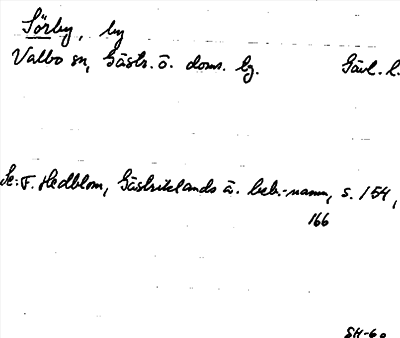 Sörby, by
Valbo sn, Gästr. ö. doms. lg. Gävl. l.
Se: F. Hedblom, Gästriklands ä. beb.-namn, s. 154,
166
SH-60